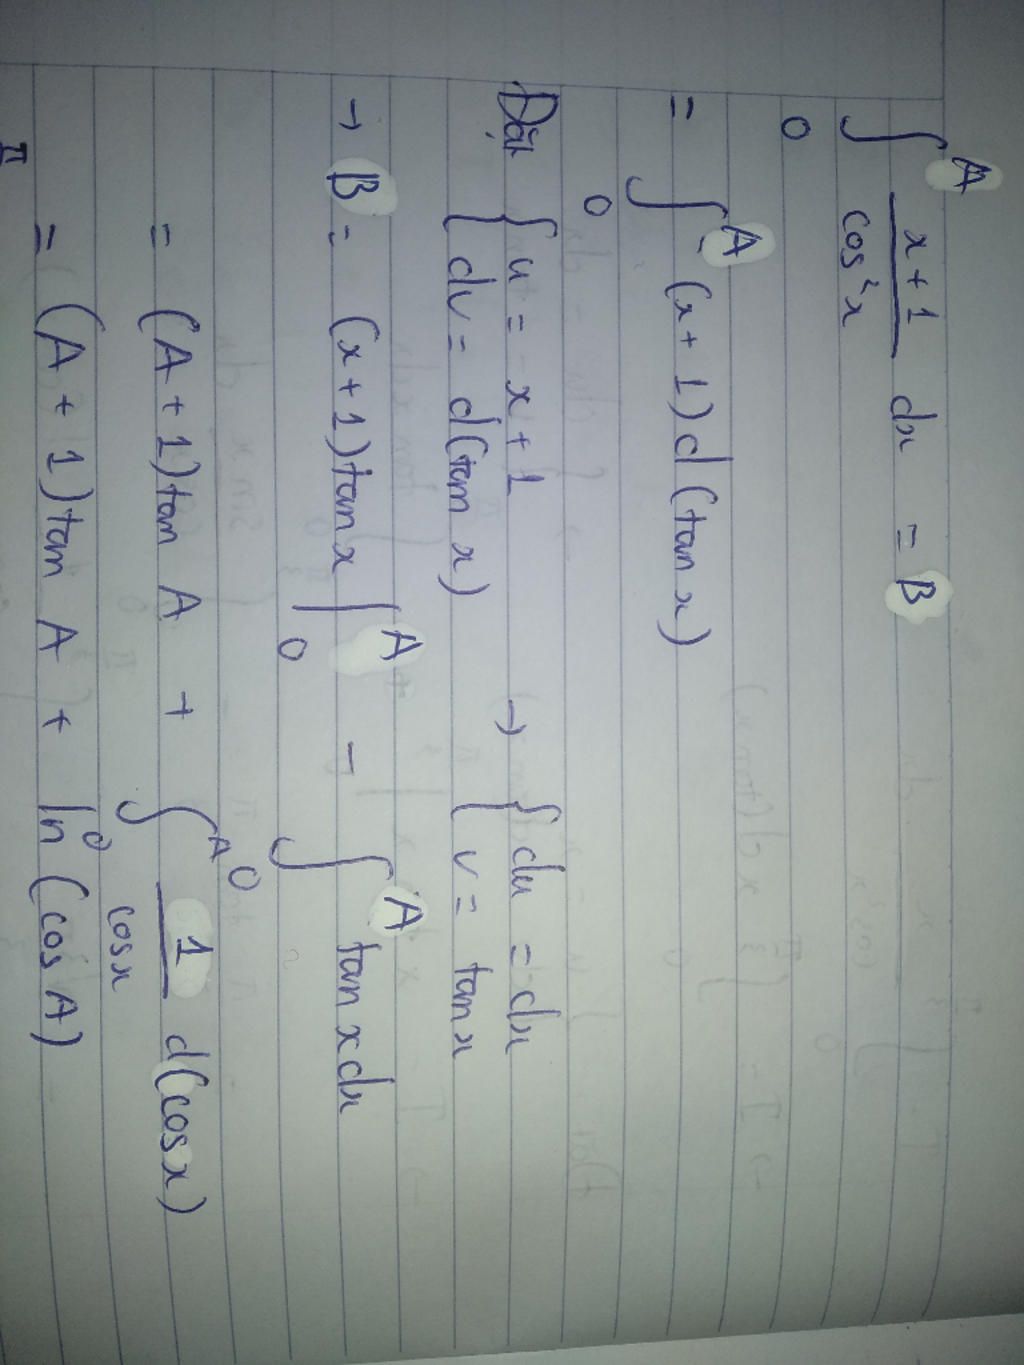 ∫₀ᴬ (x+1)/cos²x dx = B
= ∫₀ᴬ (x+1)d(tan x)
Đặt { u = x+1 → { du = dx
{ dv = d(tan x) { v = tan x
→ B = (x+1)tan x |₀ᴬ - ∫₀ᴬ tan x dx
= (A+1)tan A + ∫₀ᴬ 1/cosx d(cosx)
= (A+1)tan A + ln(cos A)
π